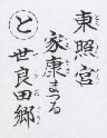 東照宮
家康まつる
と世良田郷